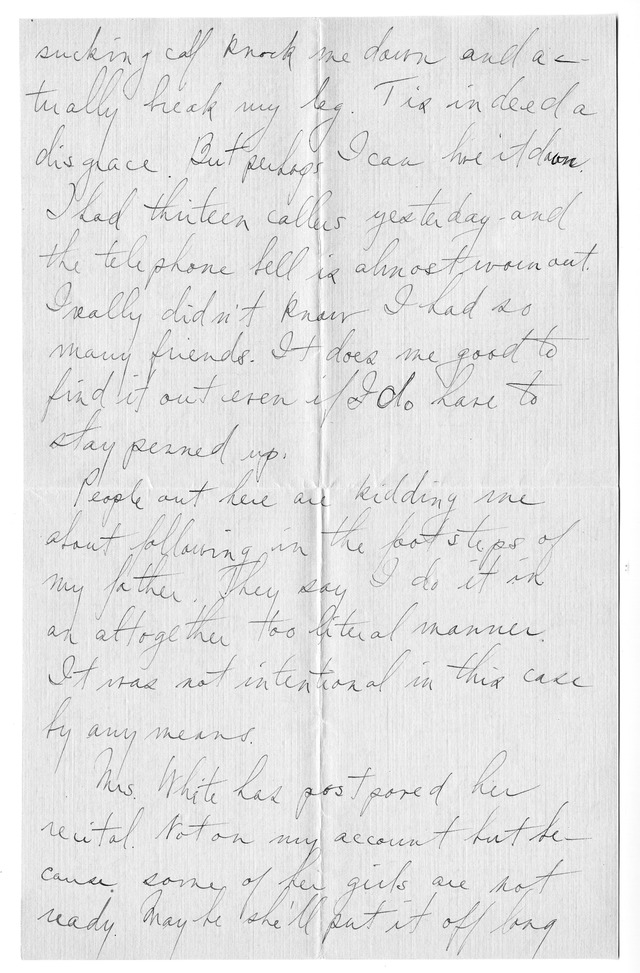 sucking calf knock me down and ac-
tually break my leg. Tis indeed a
disgrace. But perhaps I can live it down.
I had thirteen callers yesterday and
the telephone bell is almost worn out.
I really didn't know I had so
many friends. It does me good to
find it out even if I do have to
stay penned up.
People out here are kidding me
about following in the footsteps of
my father. They say I do it in
an altogether too literal manner.
It was not intentional in this case
by any means.
Mrs. White has postponed her
recital. Not on my account but be-
cause some of her girls are not
ready. Maybe she'll put it off long